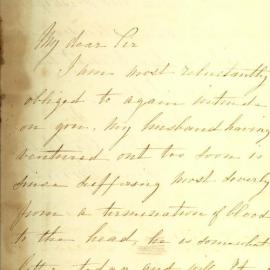 My dear Sir
I am most reluctantly
obliged to again intrude
on you. My husband having
ventured out too soon is
since suffering most severely
from a termination of blood
to the head, he is somewhat
better today and will I